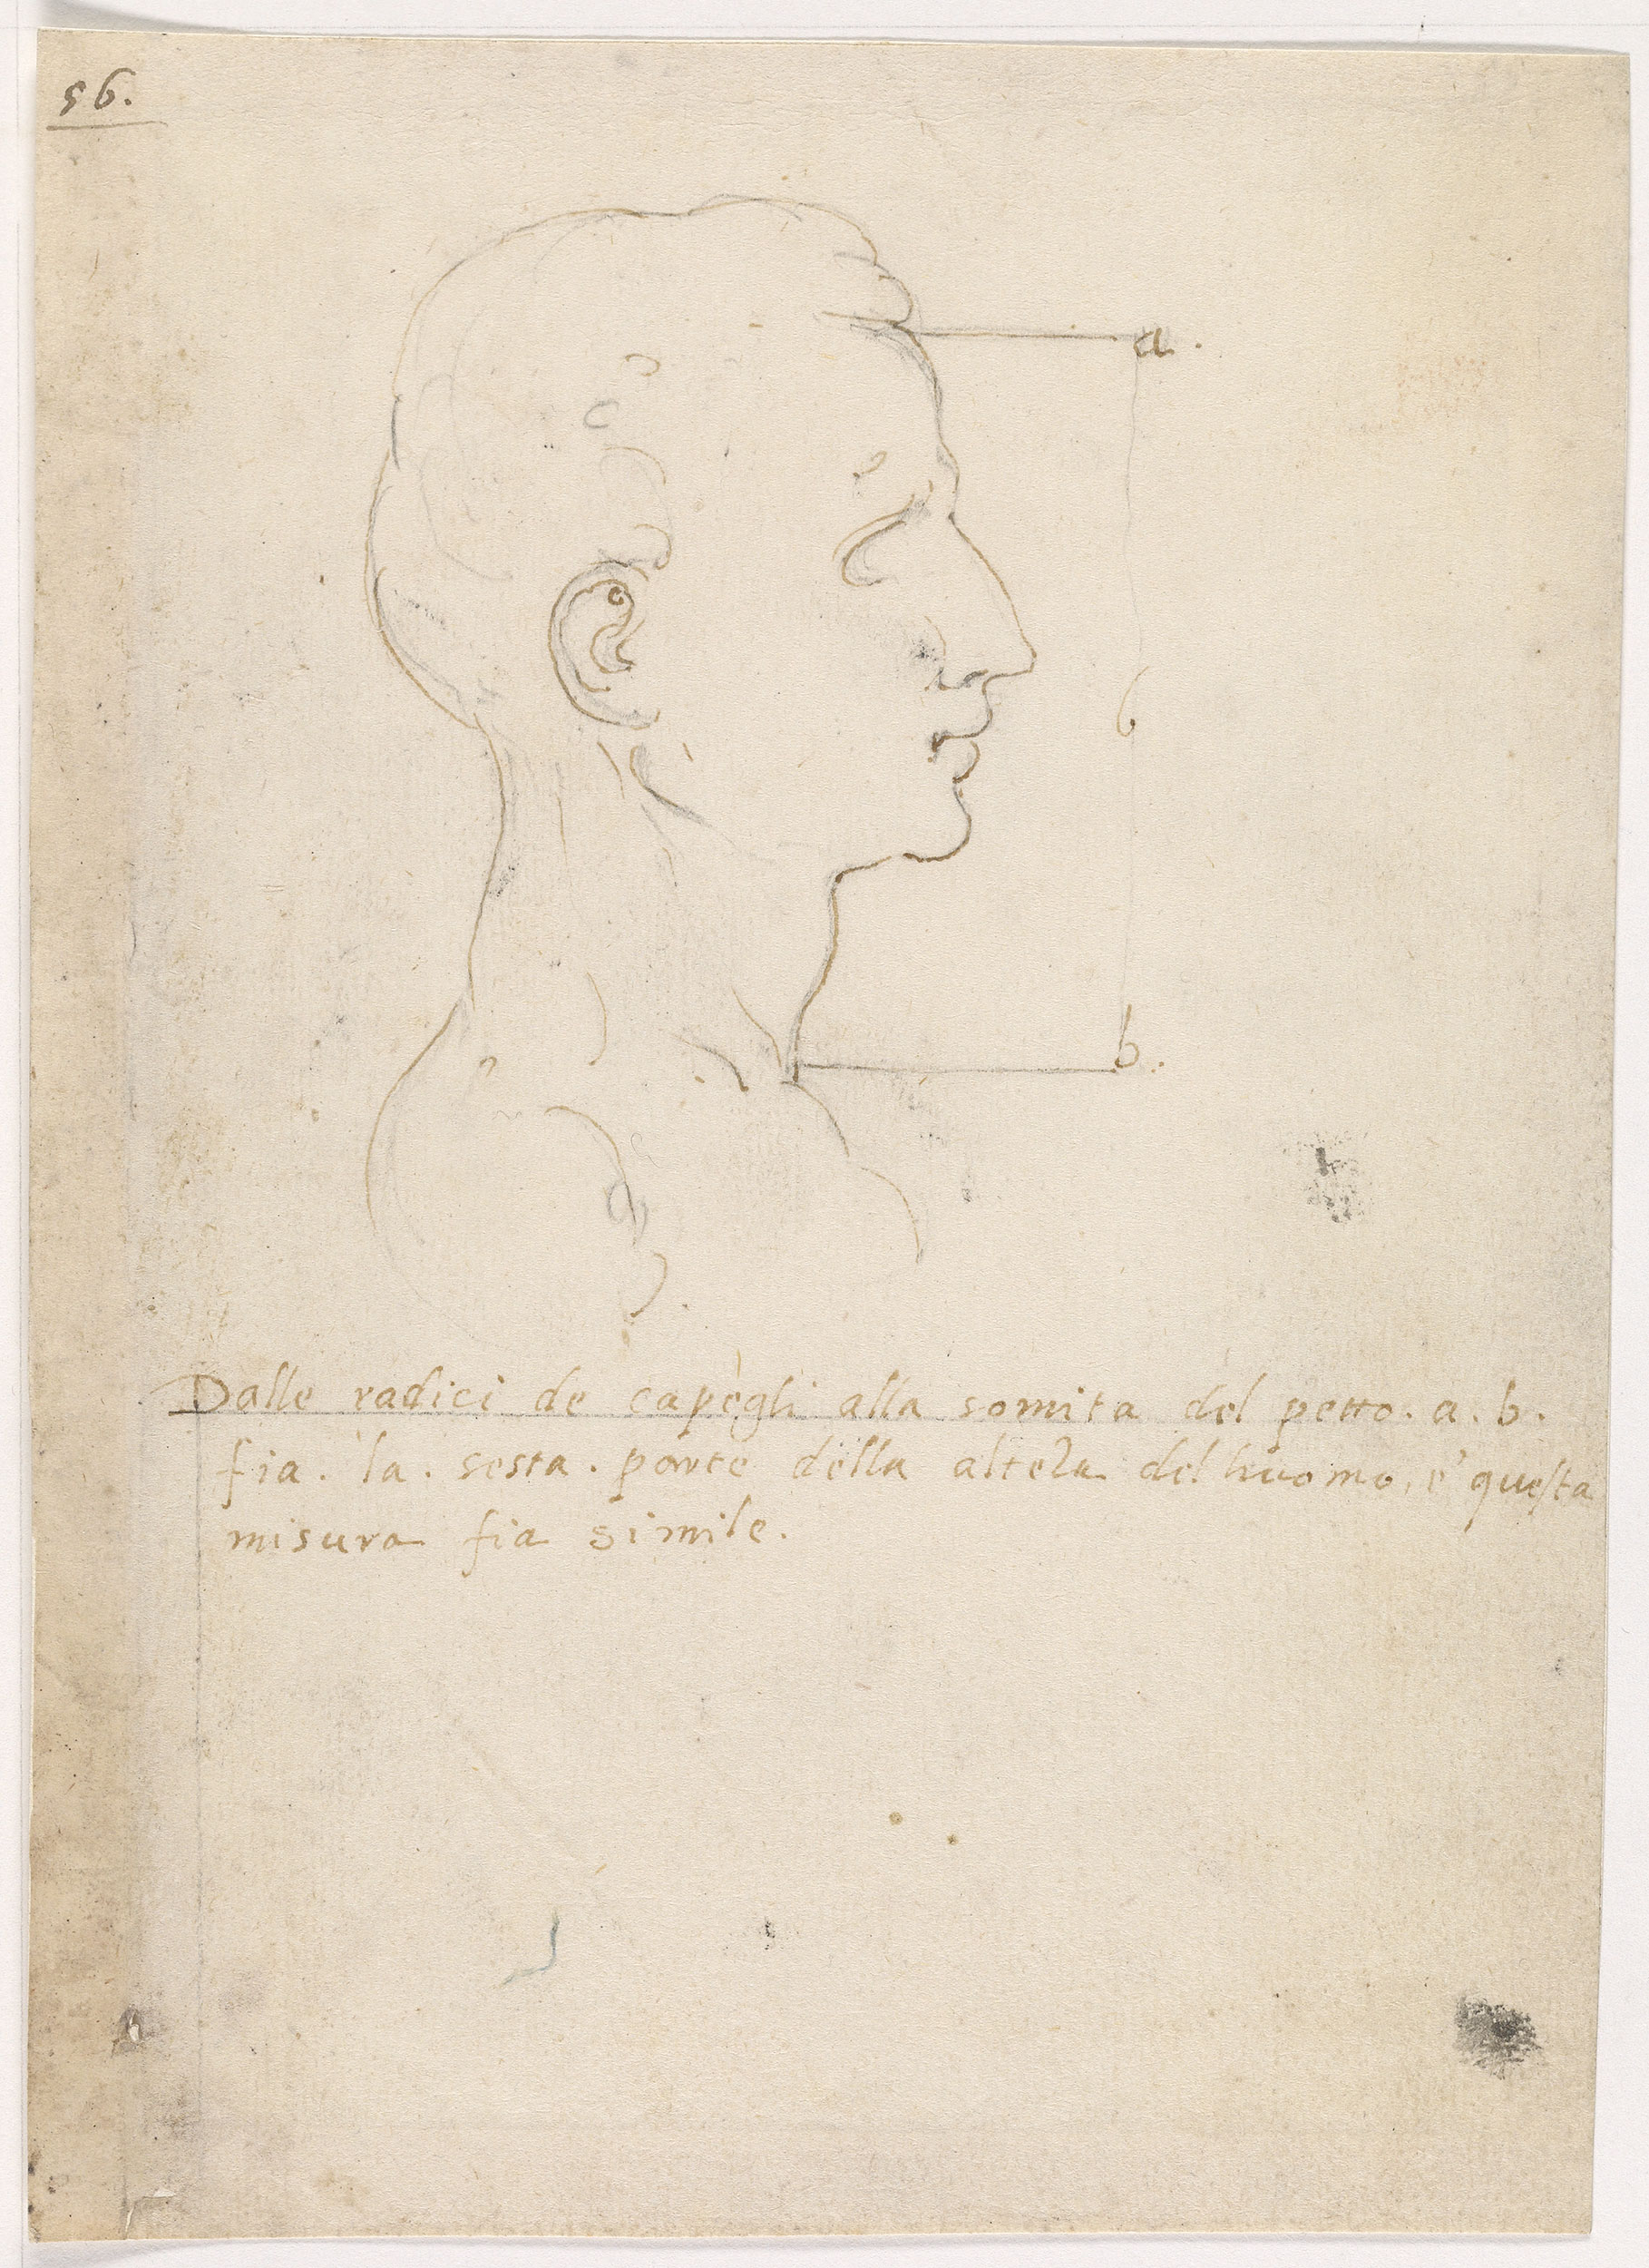 56.
a.
6
b.
Dalle radici de capegli alla somita del petto. a. b.
fia. la. sesta. parte della alteza del huomo, e questa
misura fia simile.